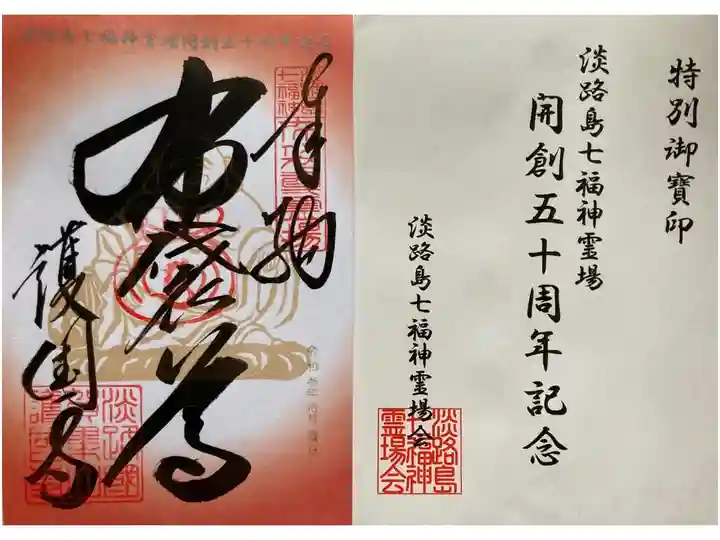 淡路島七福神霊場開創五十周年記念
奉拝
布袋尊
護国寺
特別御寶印
淡路島七福神霊場
開創五十周年記念
淡路島七福神霊場会
淡路島
七福神
霊場会